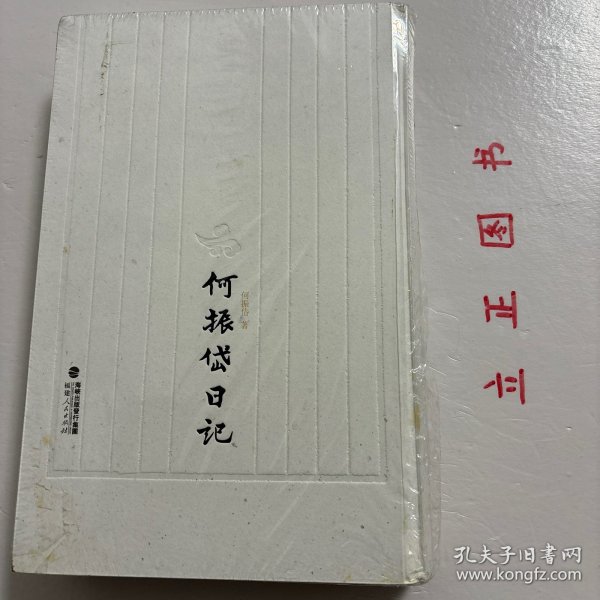 何振岱日记
何振岱 著
海峡出版發行集團
福建人民出版社
立正图书
孔夫子旧書网
www.kongfz.com